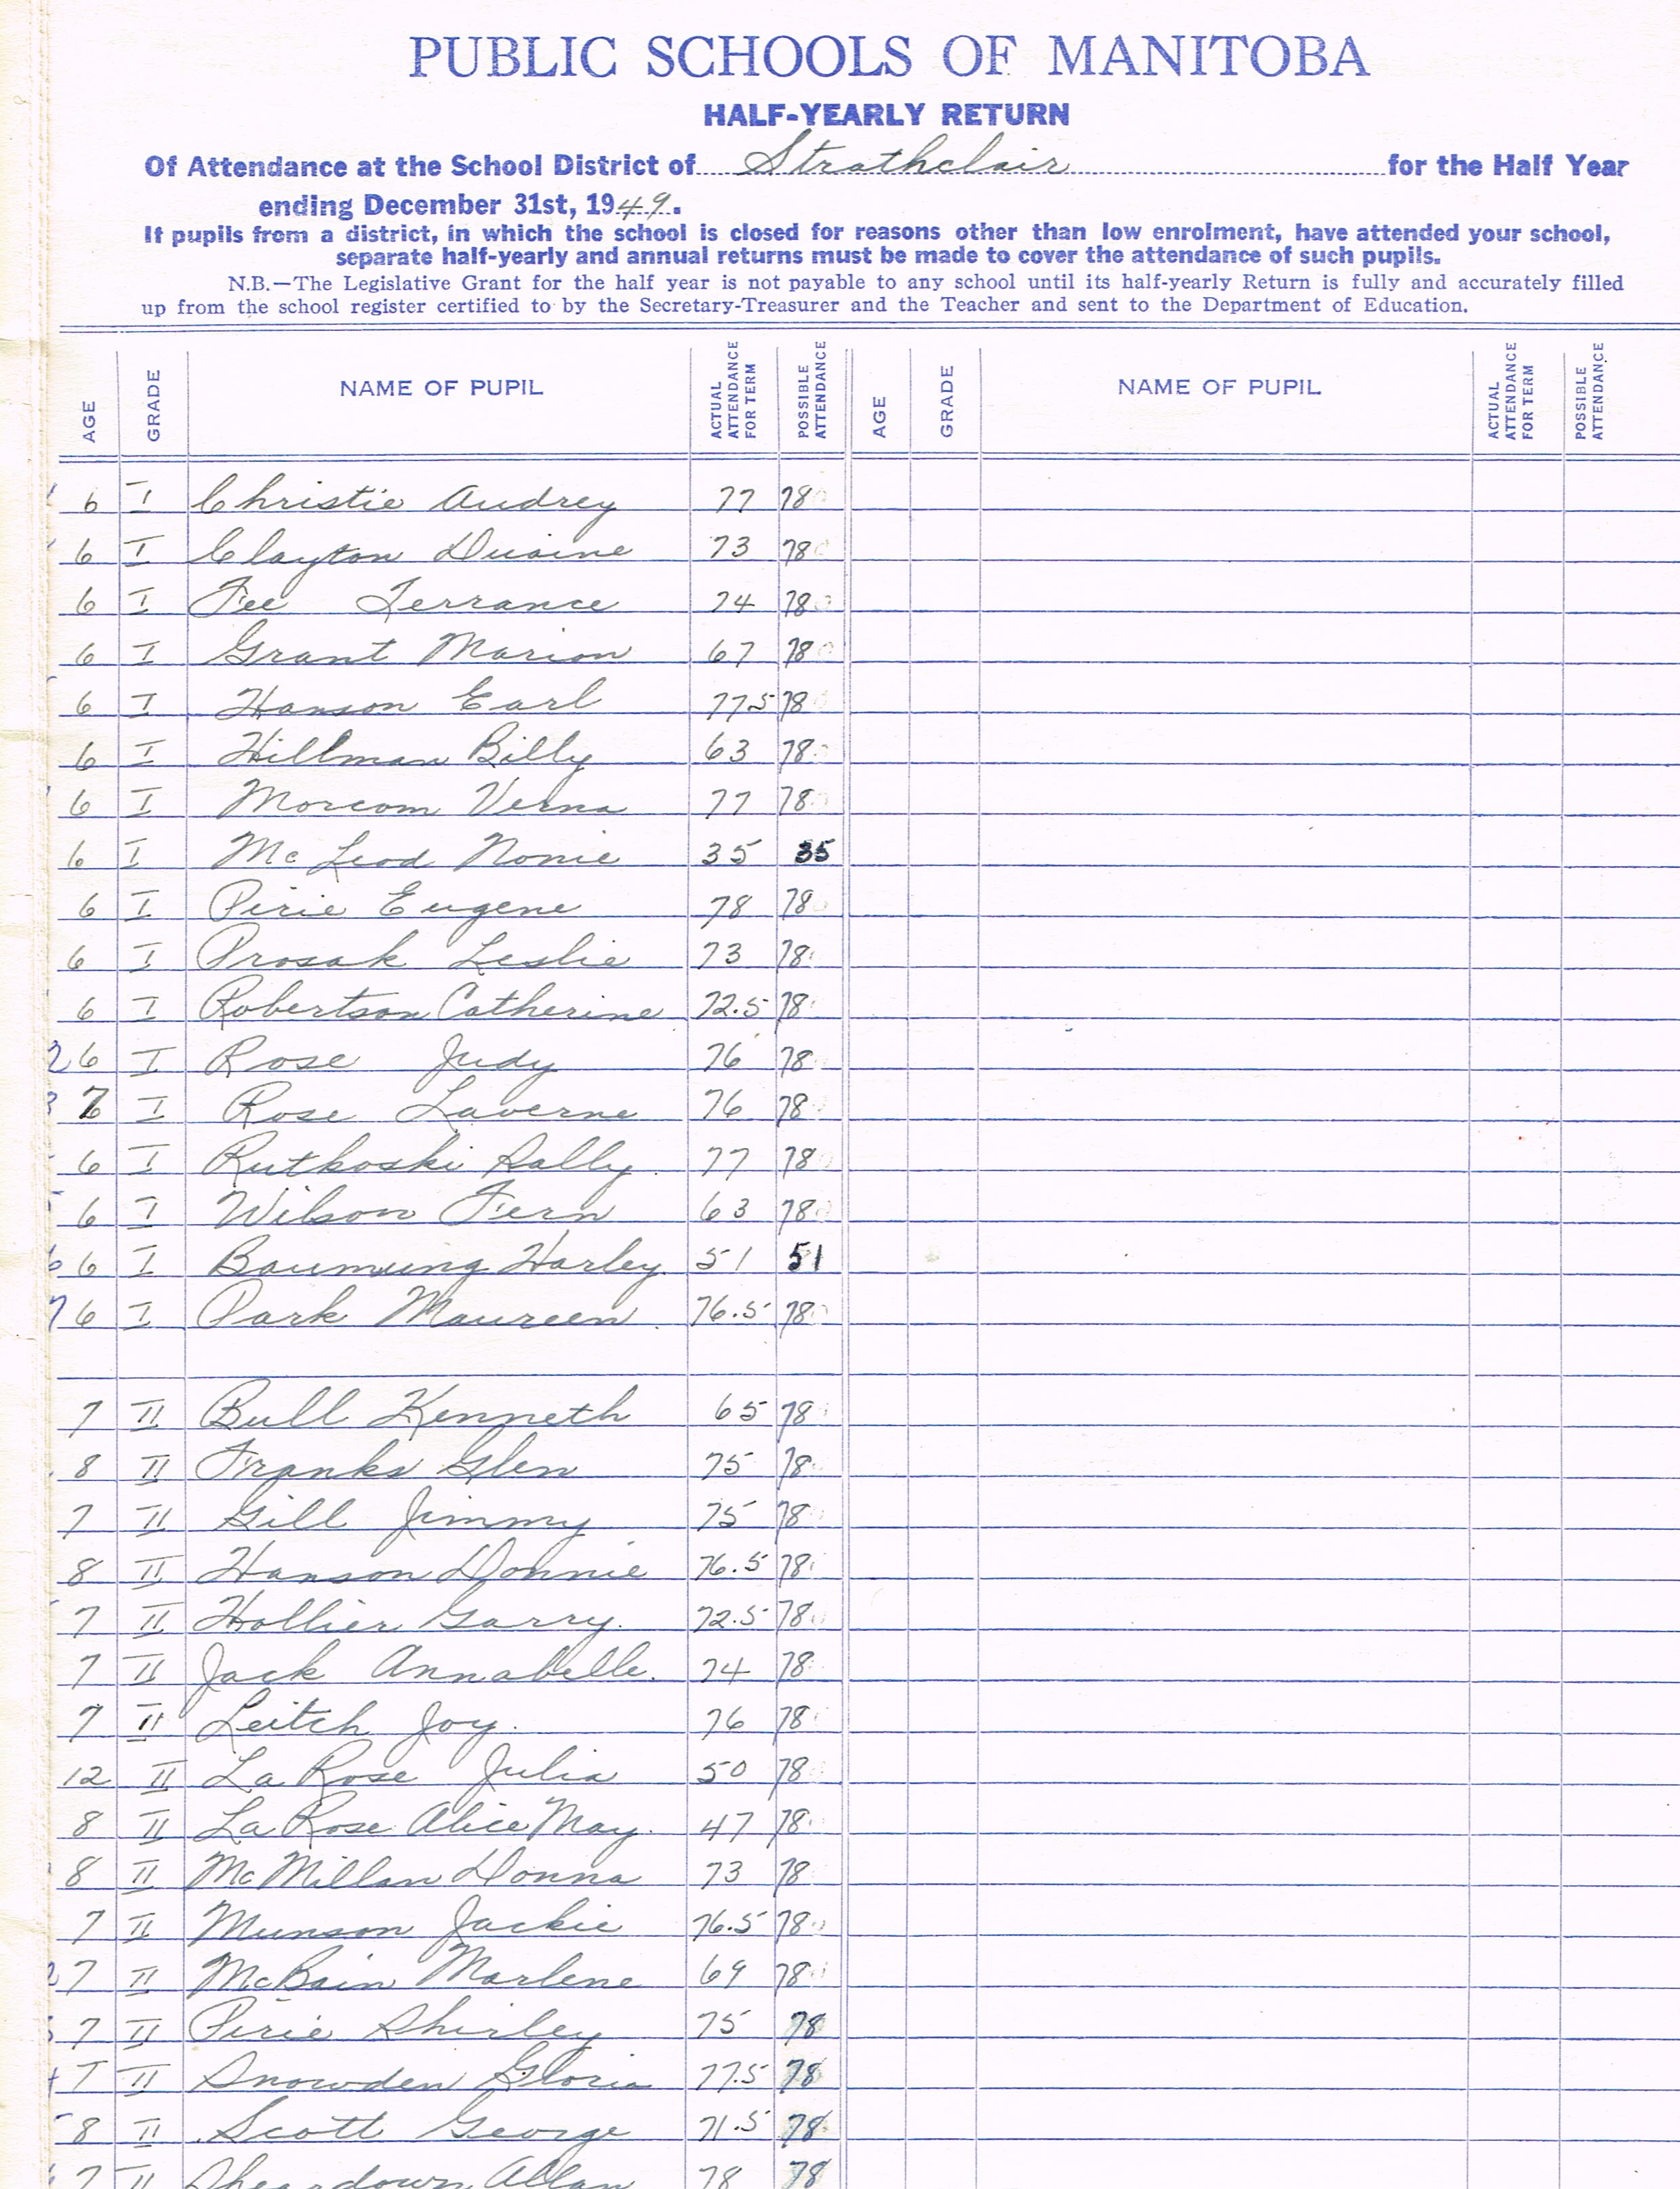 PUBLIC SCHOOLS OF MANITOBA
HALF-YEARLY RETURN
Of Attendance at the School District of Strathclair for the Half Year
ending December 31st, 1949.
If pupils from a district, in which the school is closed for reasons other than low enrolment, have attended your school,
separate half-yearly and annual returns must be made to cover the attendance of such pupils.
N.B.—The Legislative Grant for the half year is not payable to any school until its half-yearly Return is fully and accurately filled
up from the school register certified to by the Secretary-Treasurer and the Teacher and sent to the Department of Education.
AGE GRADE NAME OF PUPIL ACTUAL ATTENDANCE FOR TERM POSSIBLE ATTENDANCE AGE GRADE NAME OF PUPIL ACTUAL ATTENDANCE FOR TERM POSSIBLE ATTENDANCE
6 I Christie Audrey 77 78
6 I Clayton Duaine 73 78
6 I Fee Terrance 74 78
6 I Grant Marion 67 78
6 I Hanson Earl 77.5 78
6 I Hillman Billy 63 78
6 I Morcom Verna 77 78
6 I McLeod Nonie 35 35
6 I Pirie Eugene 78 78
6 I Prosak Leslie 73 78
6 I Robertson Catherine 72.5 78
2 6 I Rose Judy 76 78
3 7 I Rose Laverne 76 78
6 I Rutkoski Sally 77 78
6 I Wilson Fern 63 78
6 6 I Baumung Harley 51 51
7 6 I Park Maureen 76.5 78
7 II Bull Kenneth 65 78
8 II Franks Glen 75 78
7 II Gill Jimmy 75 78
8 II Hanson Donnie 76.5 78
7 II Hollier Garry. 72.5 78
7 II Jack Annabelle. 74 78
7 II Leitch Joy. 76 78
12 II La Rose Julia 50 78
8 II La Rose Alice May. 47 78
8 II McMillan Donna 73 78
7 II Munson Jackie 76.5 78
2 7 II McBain Marlene 69 78
3 7 II Pirie Shirley 75 78
4 7 II Snowden Gloria 77.5 78
5 8 II Scott George 71.5 78
7 II Sheardown Allan 78 78